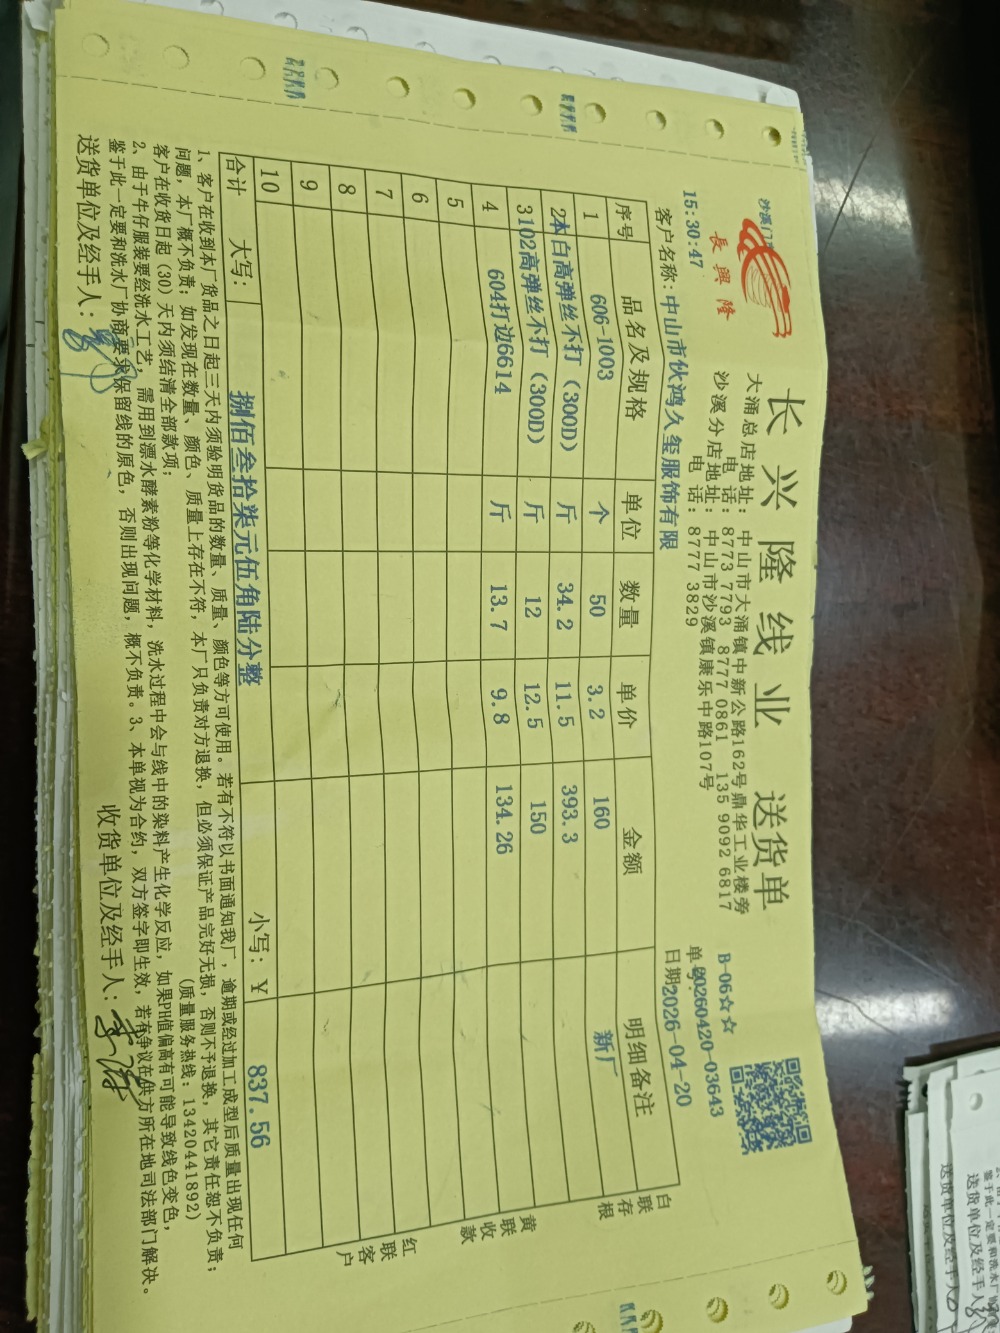 沙溪门
長興隆
15:30:47
长兴隆线业 送货单
大涌总店地址：中山市大涌镇中新公路162号鼎华工业楼旁
电 话：8773 7793 8777 0861 135 9092 6817
沙溪分店地址：中山市沙溪镇康乐中路107号
电 话：8777 3829
B-06☆☆
单号：20260420-03643
日期2026-04-20
客户名称：中山市伙鸿久玺服饰有限
序号 品名及规格 单位 数量 单价 金额 明细备注
1 606-1003 个 50 3.2 160 新厂
2 本白高弹丝不打（300D） 斤 34.2 11.5 393.3
3 102高弹丝不打（300D） 斤 12 12.5 150
4 604打边6614 斤 13.7 9.8 134.26
5
6
7
8
9
10
合计 大写： 捌佰叁拾柒元伍角陆分整 小写：￥ 837.56
白联存根
黄联收款
红联客户
1、客户在收到本厂货品之日起三天内须验明货品的数量、质量、颜色等方可使用。若有不符以书面通知我厂，逾期或经过加工成型后质量出现任何
问题，本厂概不负责；如发现在数量、颜色、质量上存在不符，本厂只负责对方退换，但必须保证产品完好无损，否则不予退换，其它责任恕不负责；
客户在收货日起（30）天内须结清全部款项； （质量服务热线：13420441892）
2、由于牛仔服装要经洗水工艺，需用到漂水酵素粉等化学材料，洗水过程中会与线中的染料产生化学反应，如果PH值偏高有可能导致线色变色，
鉴于此一定要和洗水厂协商要求保留线的原色，否则出现问题，概不负责。3、本单视为合约，双方签字即生效，若有争议在供方所在地司法部门解决。
送货单位及经手人： 收货单位及经手人：
送货单位及经手人
送货单位及经手人